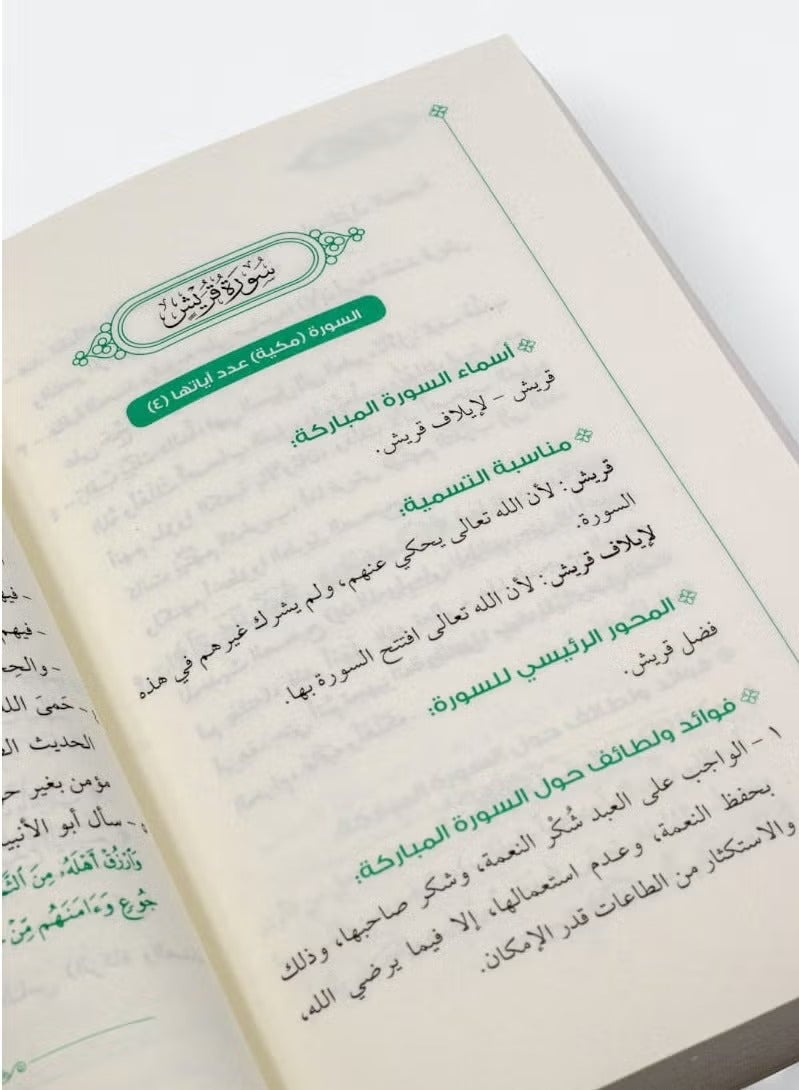 سُورَةُ قُرَيْشٍ
السورة (مكية) عدد آياتها (٤)
أسماء السورة المباركة:
قريش – لإيلاف قريش.
مناسبة التسمية:
قريش: لأن الله تعالى يحكي عنهم، ولم يشرك غيرهم في هذه
السورة.
لإيلاف قريش: لأن الله تعالى افتتح السورة بها.
المحور الرئيسي للسورة:
فضل قريش.
فوائد ولطائف حول السورة المباركة:
١ – الواجب على العبد شُكْر النعمة، وشكر صاحبها، وذلك
بحفظ النعمة، وعدم استعمالها، إلا فيما يرضي الله،
والاستكثار من الطاعات قدر الإمكان.
- فيهم
- حَمىَ
الحديث
مؤمن بغير
- سأل أبو
وَٱرۡزُقۡ أَهۡلَهُۥ مِنَ
جُوعٖ وَءَامَنَهُم مِّنۡ